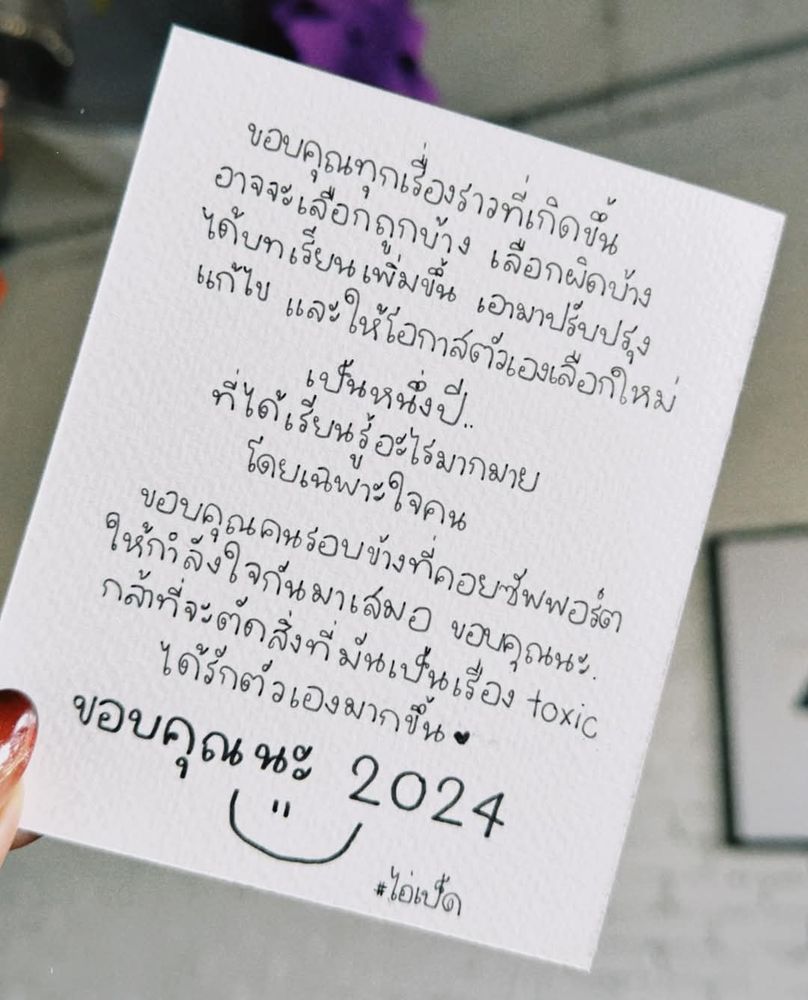 ขอบคุณทุกเรื่องราวที่เกิดขึ้น
อาจจะเลือกถูกบ้าง เลือกผิดบ้าง
ได้บทเรียนเพิ่มขึ้น เอามาปรับปรุง
แก้ไข และให้โอกาสตัวเองเลือกใหม่
เป็นหนึ่งปี..
ที่ได้เรียนรู้อะไรมากมาย
โดยเฉพาะใจคน
ขอบคุณคนรอบข้างที่คอยซัพพอร์ต
ให้กำลังใจกันมาเสมอ ขอบคุณนะ.
กล้าที่จะตัดสิ่งที่มันเป็นเรื่อง toxic
ได้รักตัวเองมากขึ้น ♥
ขอบคุณนะ 2024
#ไอ่เป็ด